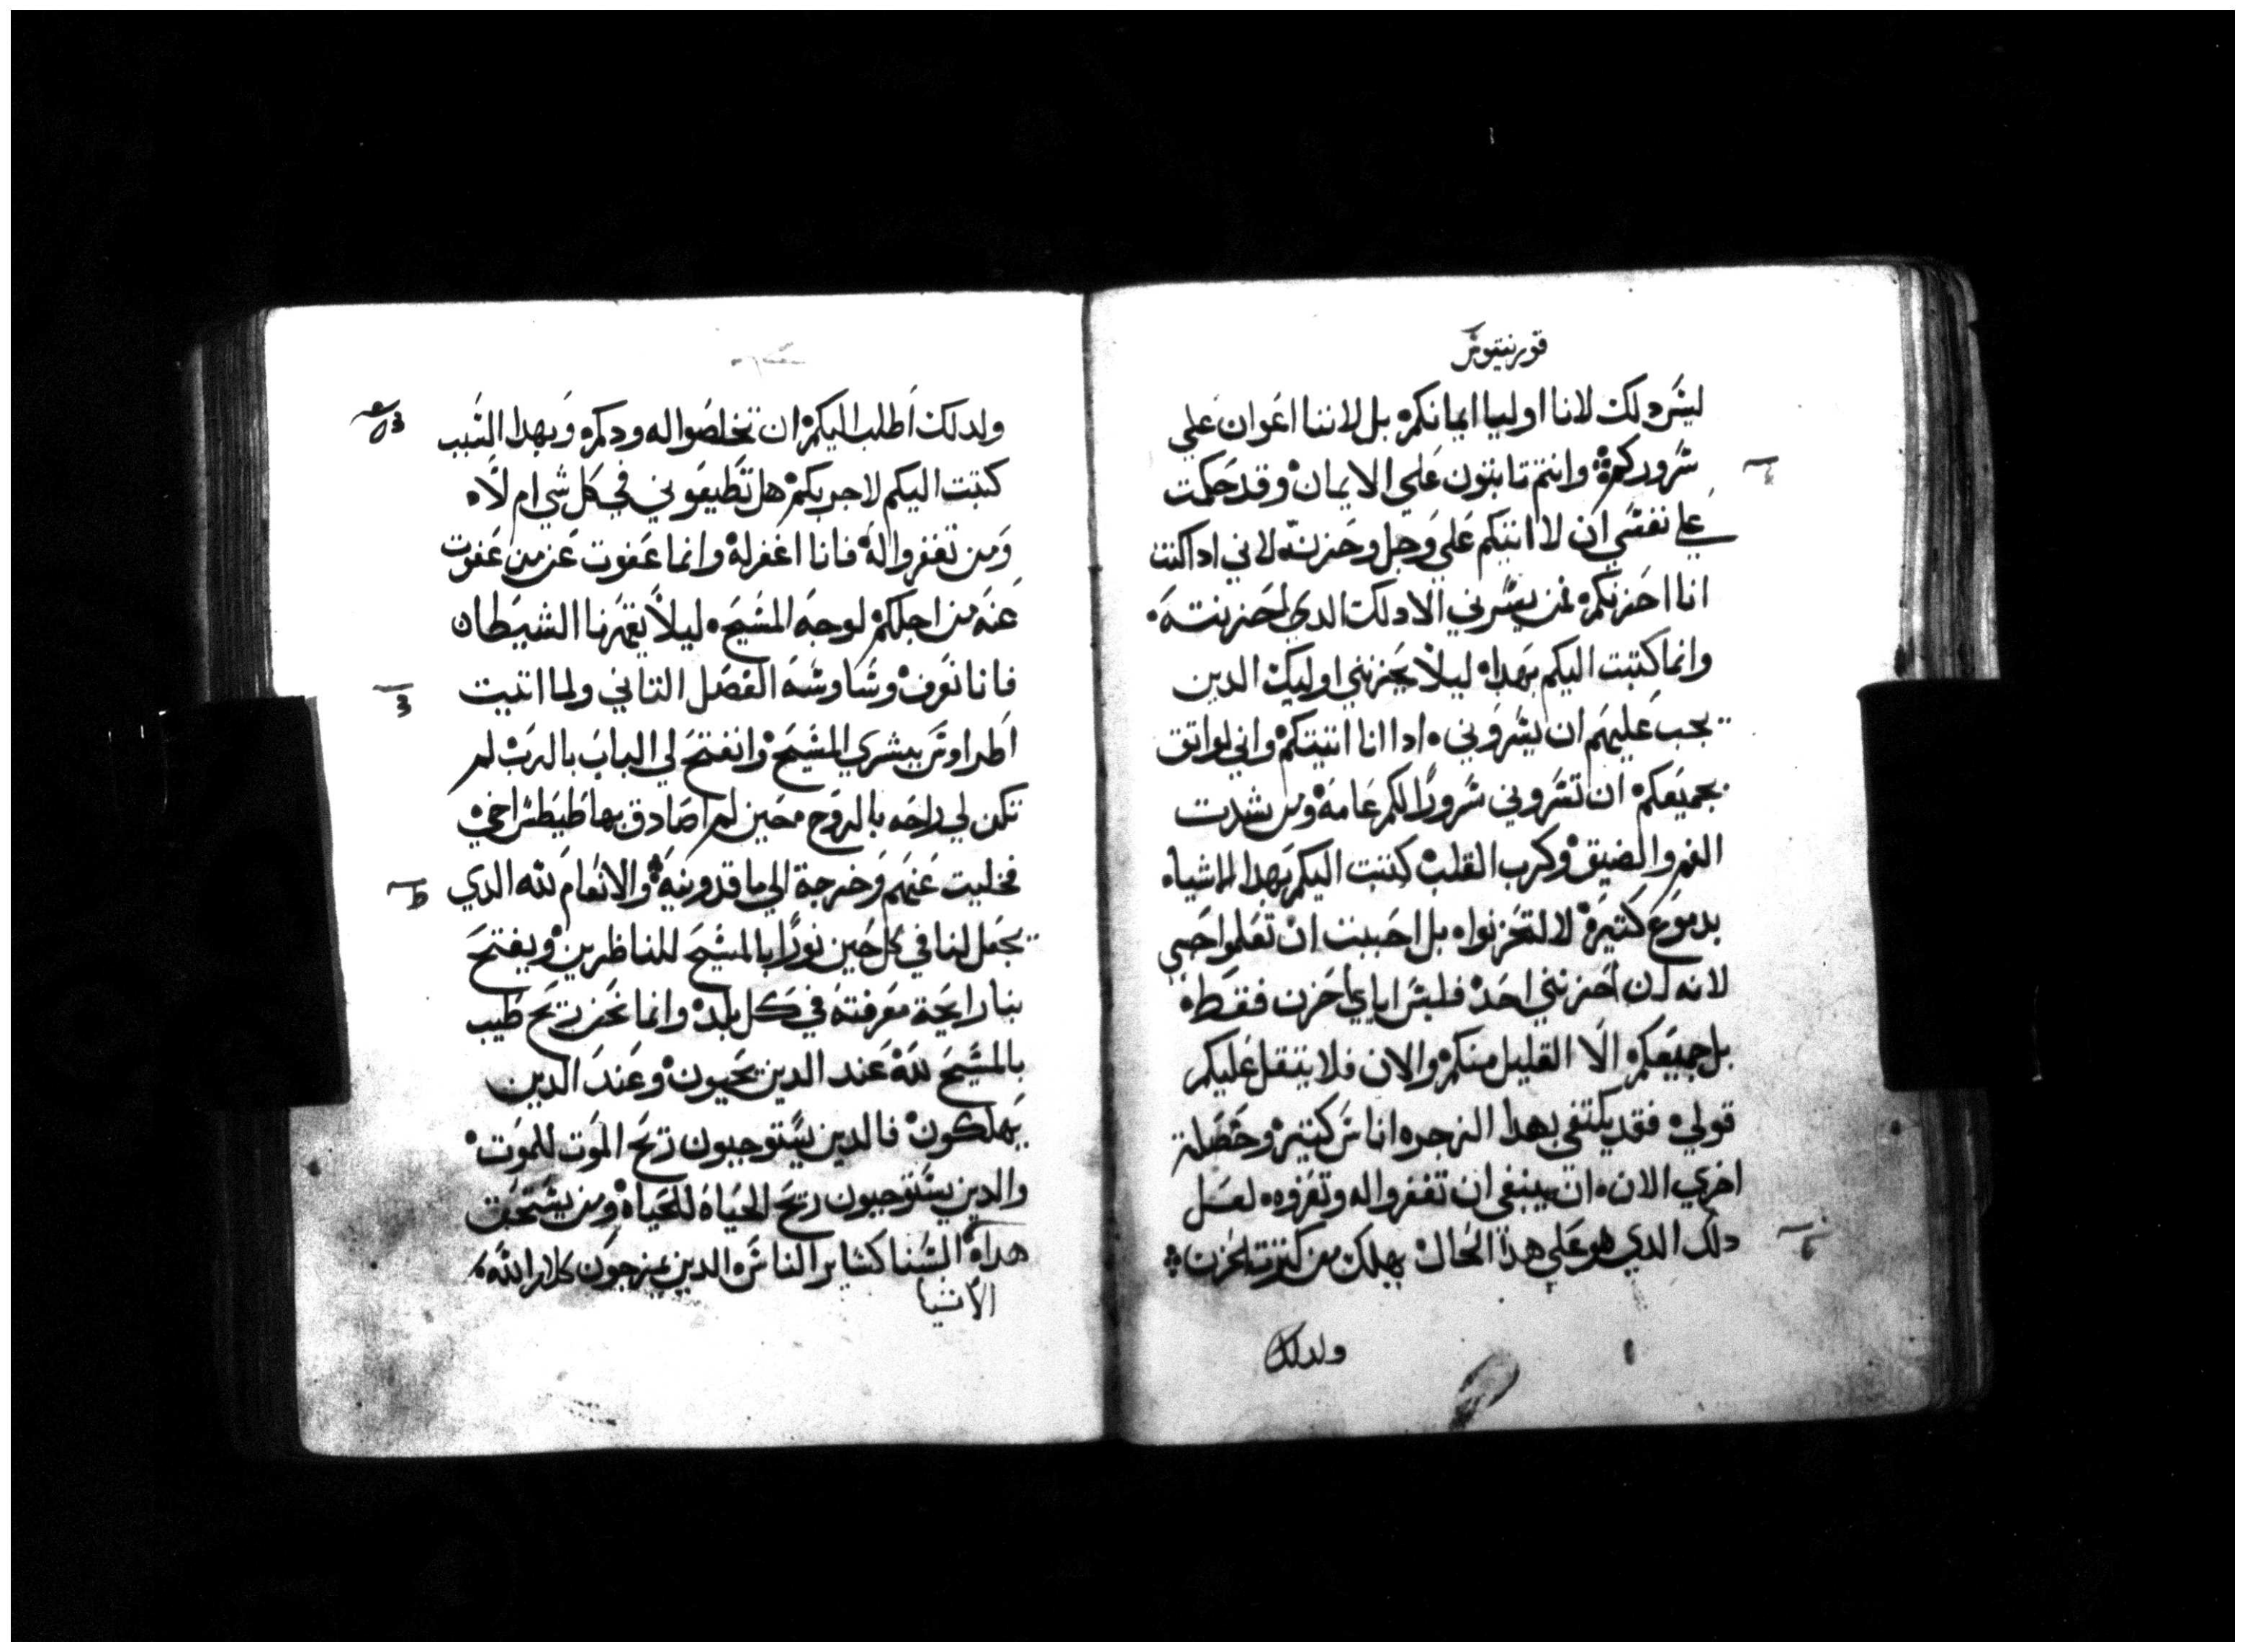 قورنتيوش
ليش دلك لاننا اوليا ايمانكم بل لاننا اعوان علي
شروركم وانتم تابتون علي الايمان وقد حكمت
علي نفشي ان لا اتيكم علي وجل وحزن لاني ادا كنت
انا احزنكم فمن يشرني الا دلك الدي احزنته
وانما كتبت اليكم بهدا ليلا يحزنني اوليك الدين
يجب عليهم ان يشروني ادا انا اتيتكم واني لواتق
بجميعكم ان تشروني شرورا لكم عامة ومن شدت
الغم والضيق وكرب القلب كتبت اليكم بهدا الاشيا
بدموع كتيرة لا لتحزنوا بل احببت ان تعلموا حبي
لانه ان احزنني احد فليش اياي احزن فقط
بل جميعكم الا القليل منكم والان فلا يتقل عليكم
قولي فقد يكتفي بهدا الزجره اناش كتيره وخصلة
اخري الان ان ينبغي ان تغفروا له وتعزوه لعل
دلك الدي هو علي هدا الحال يهلك من كترت الحزن
ولدلك
ولدلك اطلب اليكم ان تخلصوا له ودكم وبهدا الشبب
كتبت اليكم لاجربكم هل تطيعوني في كل شي ام لا
ومن تغفروا له فانا اغفر له وانما عفوت عن من عفوت
عنه من اجلكم لوجه المشيح ليلا يقهرنا الشيطان
فانا نعرف وشاوشه الفصل التاني ولما اتيت
اطراوش ببشري المشيح وانفتح لي الباب بالرب لم
تكن لي راحه بالروح محين لم اصادق بها طيطش اخي
فخليت عنهم وخرجة الي ماقدونية والانعام لله الدي
يجعل لنا في كل حين نورا بالمشيح للناظرين ويفتح
بنا رايحة معرفته في كل بلد وانما نحن ريح طيب
بالمشيح لله عند الدين يحيون وعند الدين
يهلكون فالدين يشتوجبون ريح الموت للموت
والدين يشتوجبون ريح الحياه للحياه ومن يشتحق
هداه الشنا كشاير الناش الدين يمزجون كلام الله
الاشيا